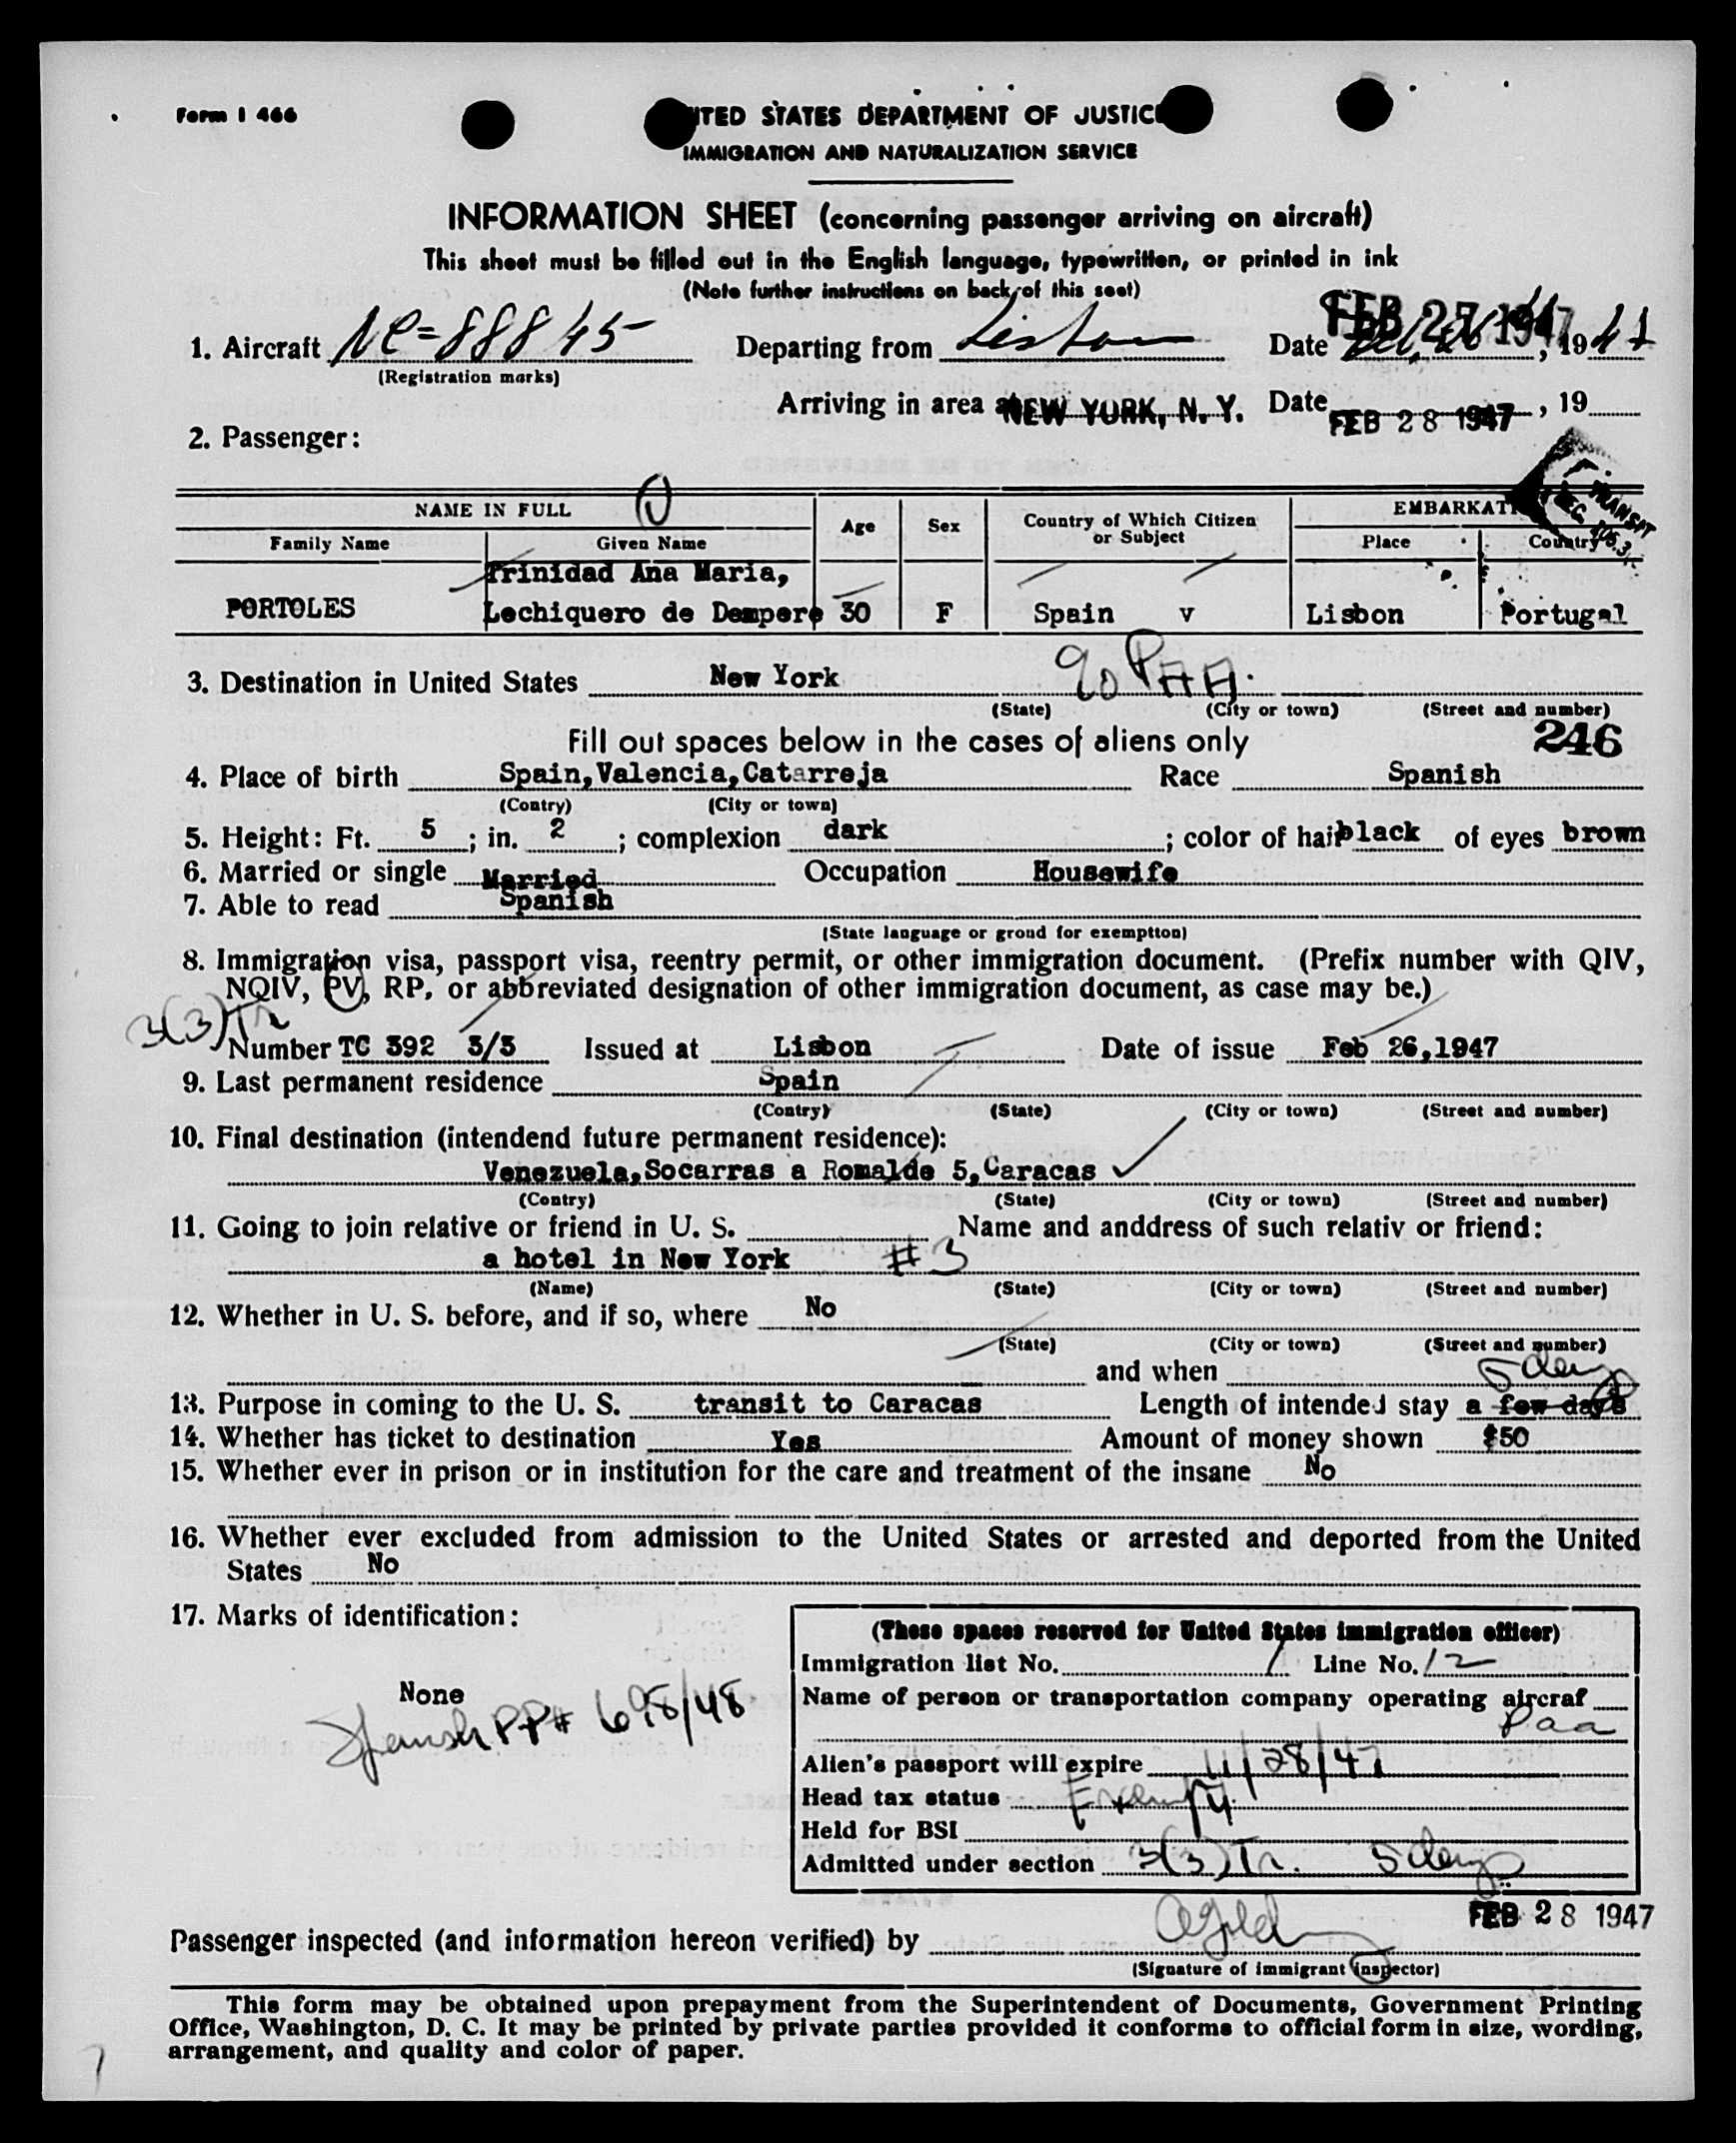 Form I 466
ITED STATES DEPARTMENT OF JUSTIC
IMMIGRATION AND NATURALIZATION SERVICE
INFORMATION SHEET (concerning passenger arriving on aircraft)
This sheet must be filled out in the English language, typewritten, or printed in ink
(Note further instructions on back of this seet)
1. Aircraft NC=88845 Departing from Lisbon Date FEB 27 1947, 1947
(Registration marks)
Arriving in area at NEW YORK, N. Y. Date FEB 28 1947, 19
2. Passenger:
NAME IN FULL Age Sex Country of Which Citizen or Subject EMBARKATI
Family Name Given Name Place Country
TRANSIT
SEC. 3
Trinidad Ana Maria,
PORTOLES Lechiquero de Dempere 30 F Spain v Lisbon Portugal
3. Destination in United States New York c/o PAA.
(State) (City or town) (Street and number)
Fill out spaces below in the cases of aliens only 246
4. Place of birth Spain,Valencia,Catarroja Race Spanish
(Contry) (City or town)
5. Height: Ft. 5 ; in. 2 ; complexion dark ; color of hair black of eyes brown
6. Married or single Married Occupation Housewife
7. Able to read Spanish
(State language or groud for exemptton)
8. Immigration visa, passport visa, reentry permit, or other immigration document. (Prefix number with QIV,
NQIV, PV, RP, or abbreviated designation of other immigration document, as case may be.)
3(3)Tr
Number TC 392 3/3 Issued at Lisbon Date of issue Feb 26,1947
9. Last permanent residence Spain
(Contry) (State) (City or town) (Street and number)
10. Final destination (intendend future permanent residence):
Venezuela,Socarras a Romalde 5,Caracas
(Contry) (State) (City or town) (Street and number)
11. Going to join relative or friend in U. S. Name and anddress of such relativ or friend:
a hotel in New York #3
(Name) (State) (City or town) (Street and number)
12. Whether in U. S. before, and if so, where No
(State) (City or town) (Street and number)
and when 5 days
13. Purpose in coming to the U. S. transit to Caracas Length of intended stay a few days
14. Whether has ticket to destination Yes Amount of money shown $50
15. Whether ever in prison or in institution for the care and treatment of the insane No
16. Whether ever excluded from admission to the United States or arrested and deported from the United
States No
17. Marks of identification:
None
Spanish PP# 698/48
(These spaces reserved for United States immigration officer)
Immigration list No. 1 Line No. 12
Name of person or transportation company operating aircraf
Paa
Alien's passport will expire 11/28/47
Head tax status Exempt
Held for BSI
Admitted under section 3(3)Tr. 5 days
FEB 28 1947
Passenger inspected (and information hereon verified) by
(Signature of immigrant inspector)
This form may be obtained upon prepayment from the Superintendent of Documents, Government Printing
Office, Washington, D. C. It may be printed by private parties provided it conforms to official form in size, wording,
arrangement, and quality and color of paper.